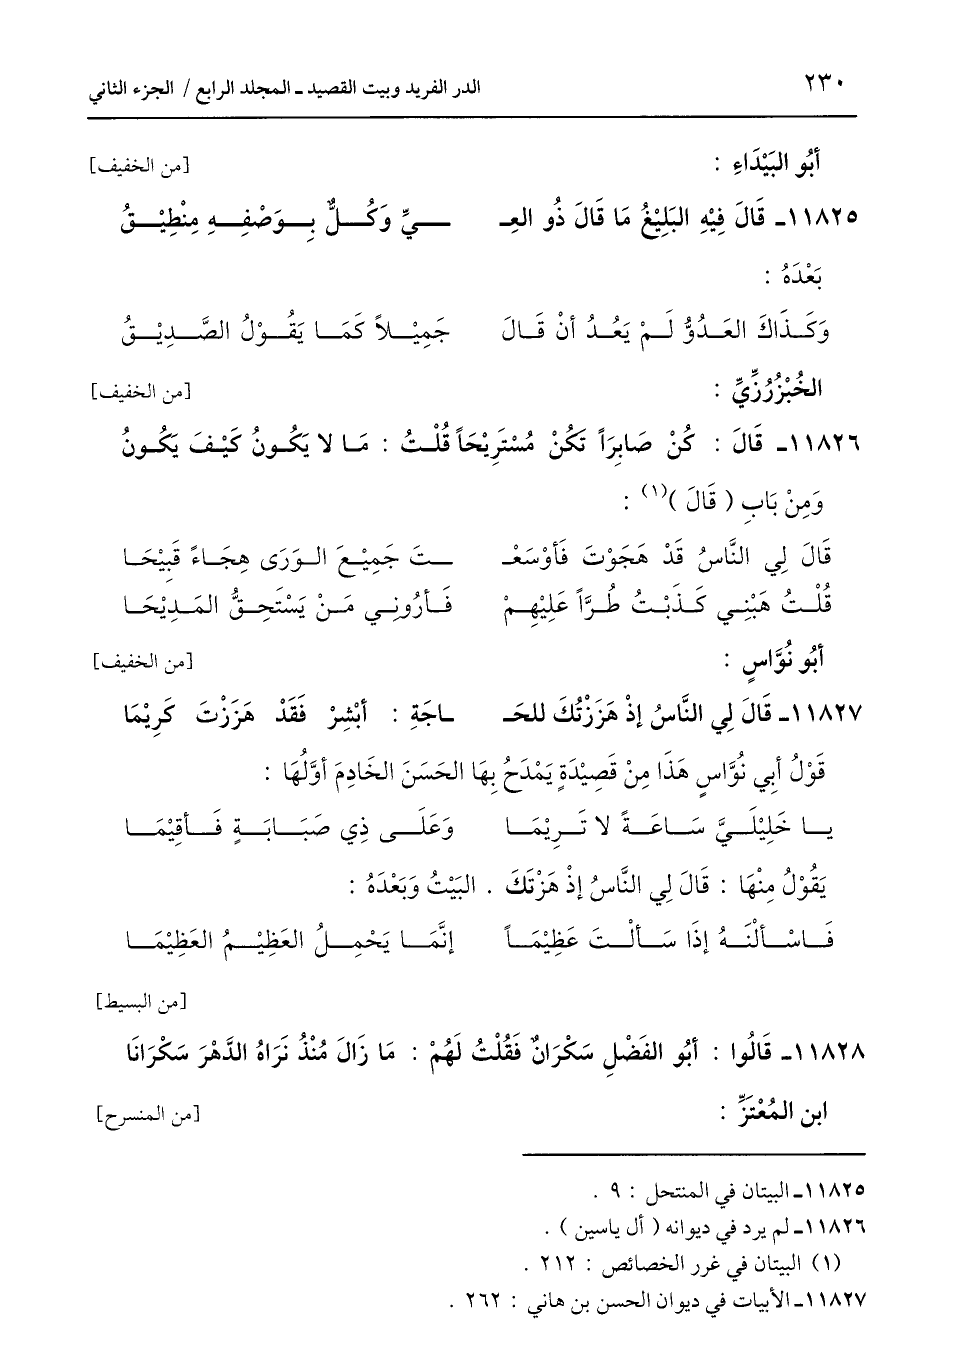 ٢٣٠ الدر الفريد وبيت القصيد ـ المجلد الرابع / الجزء الثاني
أَبُو البَيْدَاءِ : [من الخفيف]
١١٨٢٥ـ قَالَ فِيْهِ البَلِيْغُ مَا قَالَ ذُو العِـ ـــيِّ وَكُــلٌّ بِــوَصْفِــهِ مِنْطِيْــقُ
بَعْدَهُ :
وَكَــذَاكَ العَــدُوُّ لَــمْ يَعْــدُ أَنْ قَــالَ جَمِيْــلاً كَمَــا يَقُــوْلُ الصَّــدِيْــقُ
الخُبْزُرُزِّيِّ : [من الخفيف]
١١٨٢٦ـ قَالَ : كُنْ صَابِرَاً تَكُنْ مُسْتَرِيْحَاً قُلْــتُ : مَـا لا يَكُـونُ كَيْـفَ يَكُـونُ
وَمِنْ بَابِ ( قَالَ )(١) :
قَالَ لِي النَّاسُ قَدْ هَجَوْتَ فَأَوْسَعْـ ـــتَ جَمِيْــعَ الــوَرَى هِجَــاءً قَبِيْحَــا
قُلْــتُ هَبْنِــي كَــذَبْــتُ طُــرَّاً عَلَيْهِــمْ فَــأَرُونِــي مَــنْ يَسْتَحِــقُّ المَــدِيْحَــا
أَبُو نُوَّاسٍ : [من الخفيف]
١١٨٢٧ـ قَالَ لِي النَّاسُ إِذْ هَزَزْتُكَ للحَـ ـاجَةِ : أَبْشِرْ فَقَدْ هَزَزْتَ كَرِيْمَا
قَوْلُ أَبِي نُوَّاسٍ هَذَا مِنْ قَصِيْدَةٍ يَمْدَحُ بِهَا الحَسَنَ الخَادِمَ أَوَّلُهَا :
يــا خَلِيْلَــيَّ سَــاعَــةً لا تَــرِيْمَــا وَعَلَــى ذِي صَبَــابَــةٍ فَــأَقِيْمَــا
يَقُوْلُ مِنْهَا : قَالَ لِي النَّاسُ إِذْ هَزْتَكَ . البَيْتُ وَبَعْدَهُ :
فَــاسْــأَلْنَــهُ إِذَا سَــأَلْــتَ عَظِيْمَــاً إِنَّمَــا يَحْمِــلُ العَظِيْــمُ العَظِيْمَــا
[من البسيط]
١١٨٢٨ـ قَالُوا : أَبُو الفَضْلِ سَكْرَانٌ فَقُلْتُ لَهُمْ : مَا زَالَ مُنْذُ نَرَاهُ الدَّهْرَ سَكْرَانَا
ابن المُعْتَزِّ : [من المنسرح]
١١٨٢٥ـ البيتان في المنتحل : ٩ .
١١٨٢٦ـ لم يرد في ديوانه ( آل ياسين ) .
(١) البيتان في غرر الخصائص : ٢١٢ .
١١٨٢٧ـ الأبيات في ديوان الحسن بن هاني : ٢٦٢ .